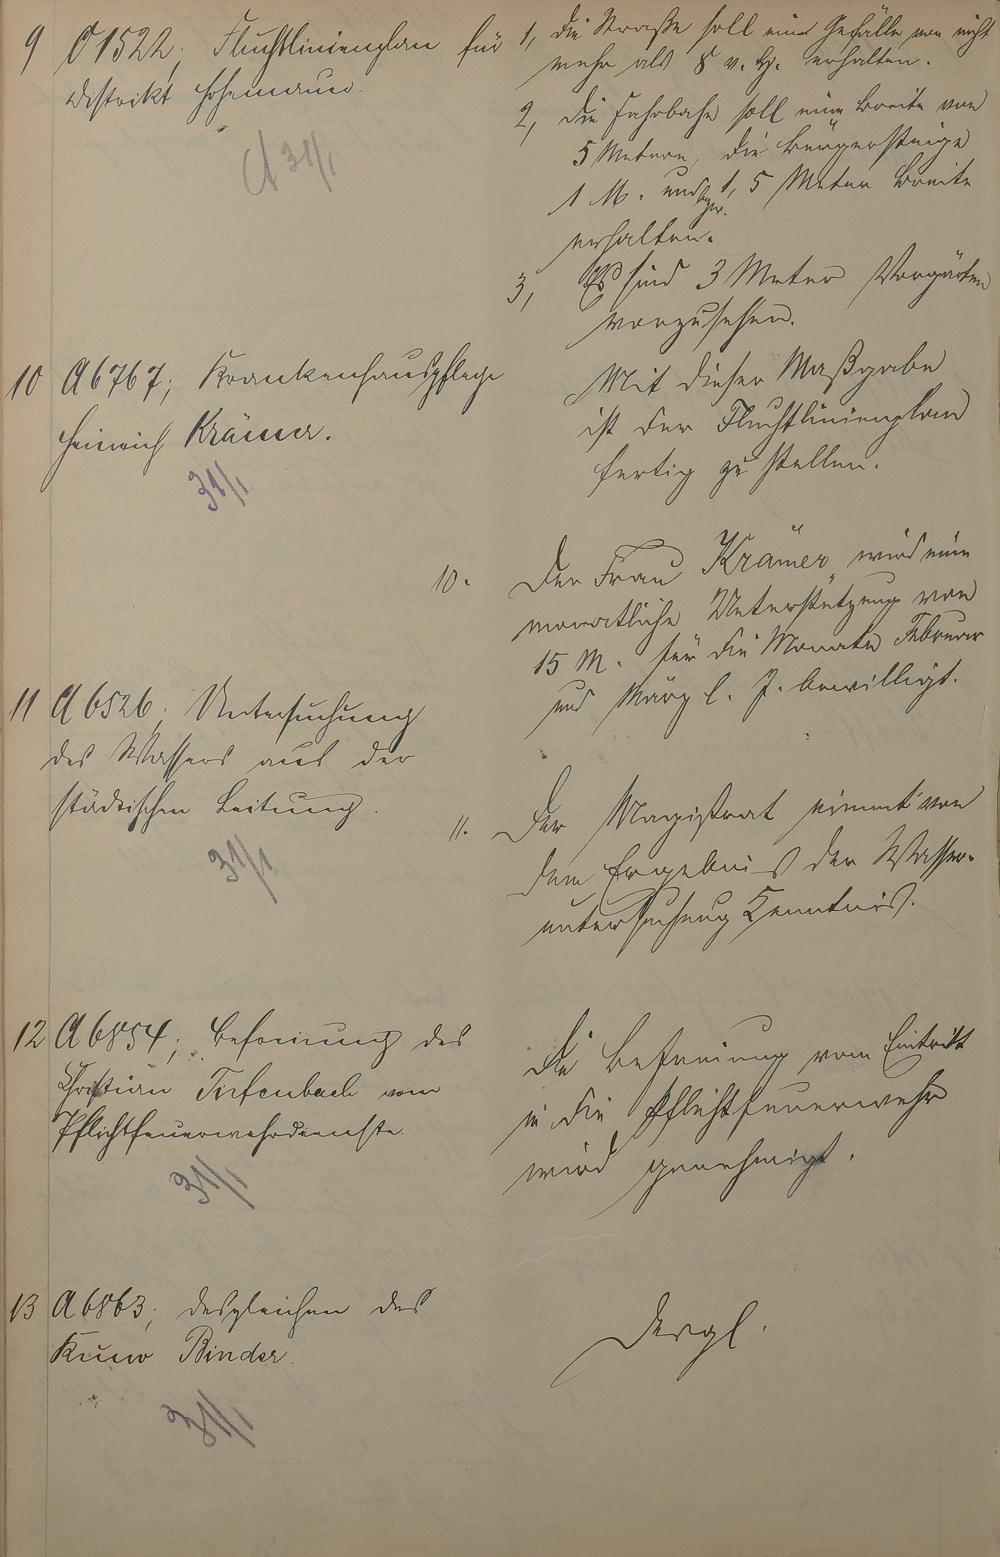 9 O 1522; Fluchtlinienplan für
Distrikt Hohemauer.
A 31/1
1, Die Straße soll ein Gefälle von nicht
mehr als 8 v. H. erhalten.
2, die Fahrbahn soll eine Breite von
5 Metern, die Bürgersteige
1 M. und bzw. 1,5 Meter Breite
erhalten.
3, Es sind 3 Meter Vorgärten
vorzusehen.
Mit dieser Maßgabe
ist der Fluchtlinienplan
fertig zu stellen.
10 A 6767; Krankenhauspflege
Heinrich Krämer.
31/1
10. Der Frau Krämer wird eine
monatliche Unterstützung von
15 M. für die Monate Februar
und März l. J. bewilligt.
11 A 6526; Untersuchung
des Wassers aus der
städtischen Leitung.
31/1
11. Der Magistrat nimmt von
dem Ergebnis der Wasser-
untersuchung Kenntnis.
12 A 6854; Befreiung des
Christian Tiefenbach vom
Pflichtfeuerwehrdienste.
31/1
Die Befreiung vom Eintritt
in die Pflichtfeuerwehr
wird genehmigt.
13 A 6863; desgleichen des
Kuno Binder.
31/1
Desgl.